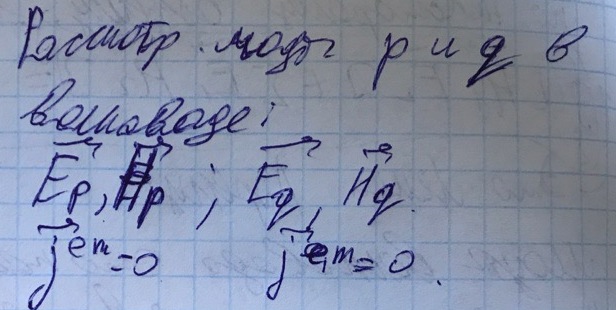 Рассмотр. моды p и q в
волноводе:
E⃗p, H⃗p ; E⃗q, H⃗q.
j⃗ em = 0 j⃗ em = 0.